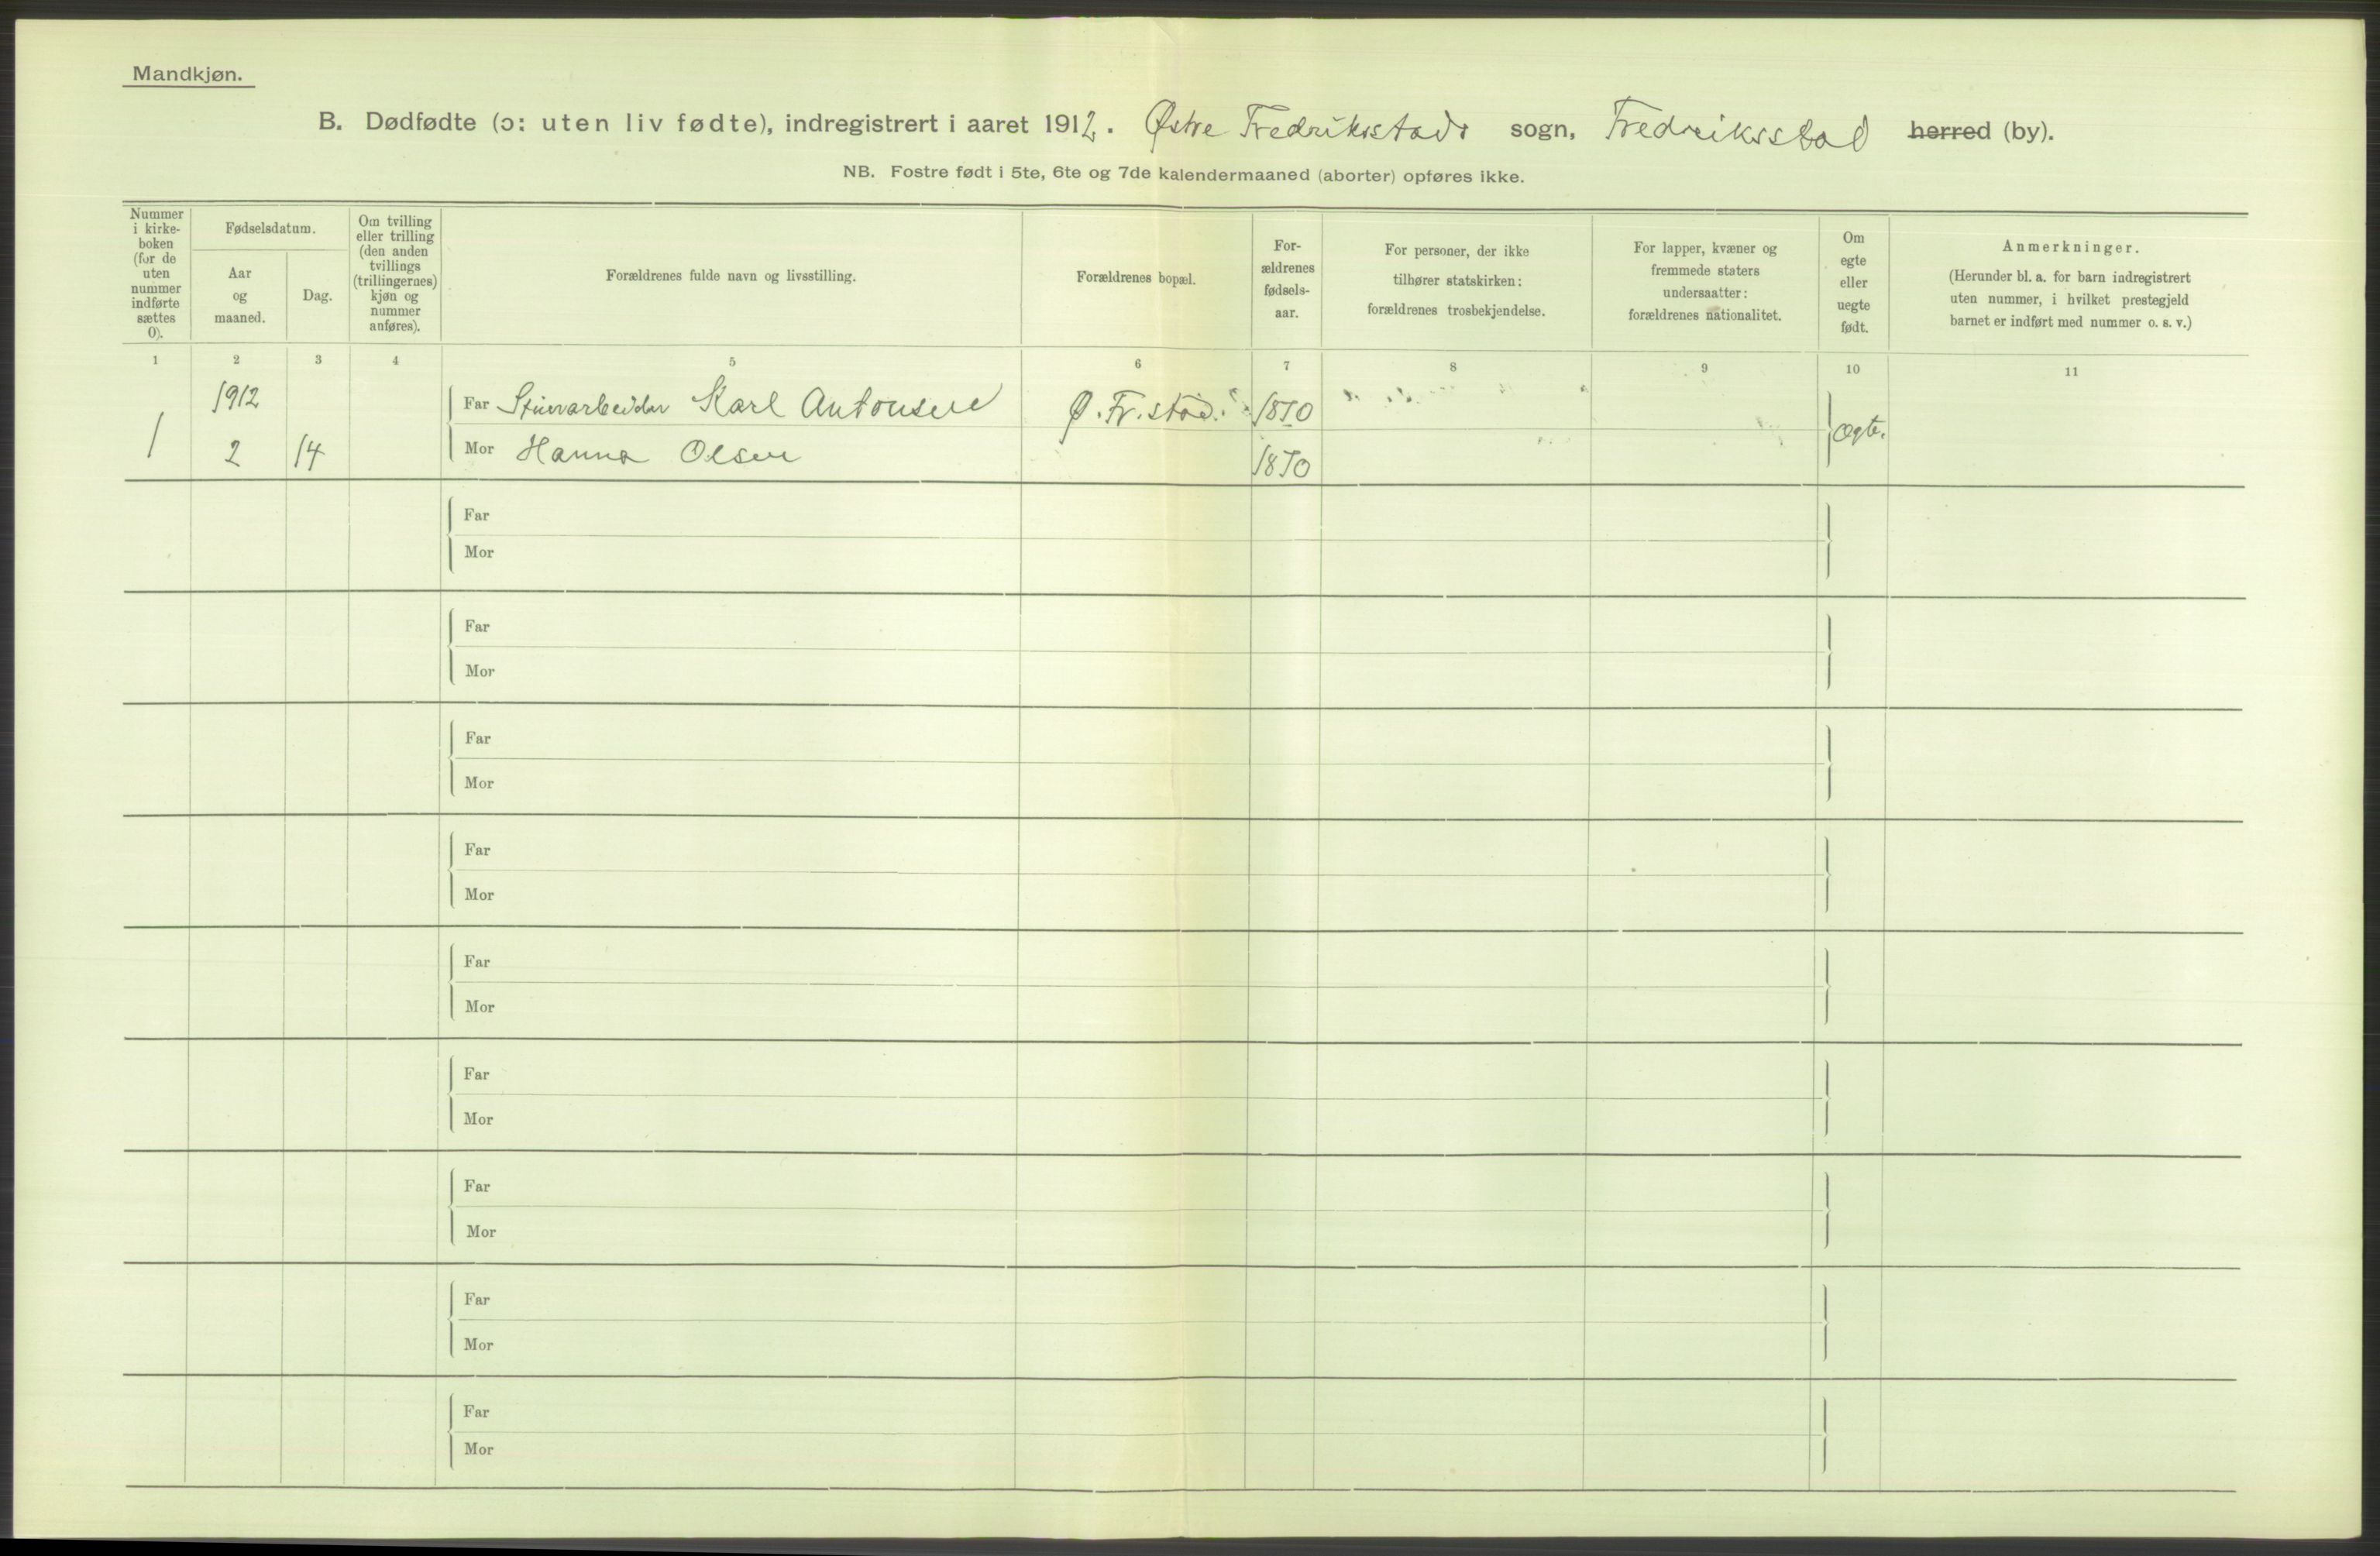 Mandkjøn.
B. Dødfødte (ɔ: uten liv fødte), indregistrert i aaret 1912. Østre Fredriksstads sogn, Fredriksstad herred (by).
NB. Fostre født i 5te, 6te og 7de kalendermaaned (aborter) opføres ikke.
Nummer i kirke-boken (for de uten nummer indførte sættes 0).
Fødselsdatum.
Aar og maaned.
Dag.
Om tvilling eller trilling (den anden tvillings (trillingernes) kjøn og nummer anføres).
Forældrenes fulde navn og livsstilling.
Forældrenes bopæl.
For-ældrenes fødsels-aar.
For personer, der ikke tilhører statskirken: forældrenes trosbekjendelse.
For lapper, kvæner og fremmede staters undersaatter: forældrenes nationalitet.
Om egte eller uegte født.
Anmerkninger.
(Herunder bl. a. for barn indregistrert uten nummer, i hvilket prestegjeld barnet er indført med nummer o. s. v.)
1 2 3 4 5 6 7 8 9 10 11
1912
Far Karl Antonsen Ø. Fr.stad.
1 2 14 Ægte.
Mor Hanna Olsen
Far
Mor
Far
Mor
Far
Mor
Far
Mor
Far
Mor
Far
Mor
Far
Mor
Far
Mor
Far
Mor